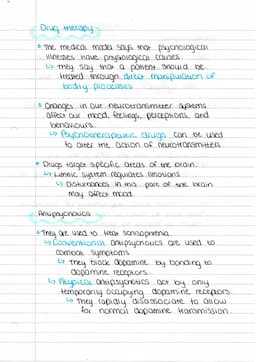 Drug therapy
• The medical model says that psychological
illnesses have physiological causes.
↳ They say that a patient should be
treated through direct manipulation of
bodily processes
• Changes in our neurotransmitter systems
affect our mood, feelings, perceptions, and
behaviours.
↳ Psychotherapeutic drugs can be used
to alter the action of neurotransmitters
• Drugs target specific areas of the brain.
↳ Limbic system regulates emotions
↳ Disturbances in this part of the brain
may affect mood.
Antipsychotics
• They are used to treat schizophrenia.
↳ Conventional antipsychotics are used to
combat symptoms
↳ They block dopamine by bonding to
dopamine receptors.
↳ Atypical antipsychotics act by only
temporarily occupying dopamine receptors.
↳ They rapidly disassociate to allow
for normal dopamine transmission.